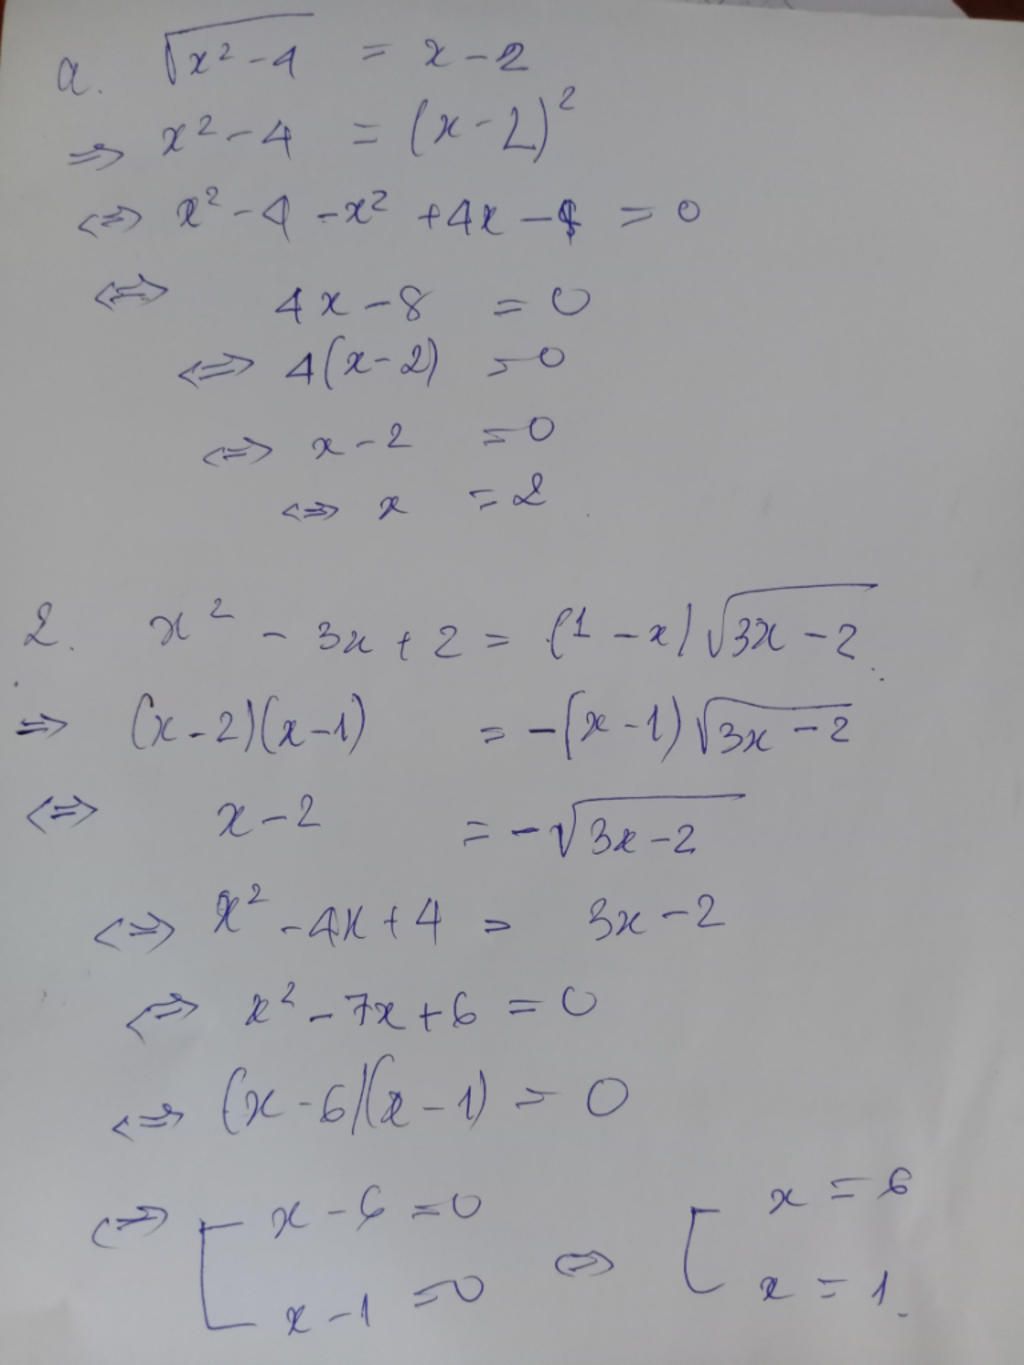 a. √(x² - 4) = x - 2
⇒ x² - 4 = (x - 2)²
⇔ x² - 4 - x² + 4x - 4 = 0
⇔ 4x - 8 = 0
⇔ 4(x - 2) = 0
⇔ x - 2 = 0
⇔ x = 2
2. x² - 3x + 2 = (1 - x)√(3x - 2)
⇒ (x - 2)(x - 1) = -(x - 1)√(3x - 2)
⇔ x - 2 = -√(3x - 2)
⇔ x² - 4x + 4 = 3x - 2
⇔ x² - 7x + 6 = 0
⇔ (x - 6)(x - 1) = 0
⇔ [ x - 6 = 0 ⇔ [ x = 6
x - 1 = 0 x = 1.